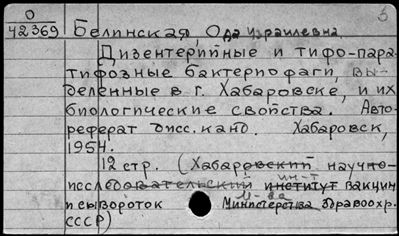 О
42369
Белинская, Ода Израилевна
Дизентерийные и тифо-пара-
тифозные бактериофаги, вы-
деленные в г. Хабаровске, и их
биологические свойства. Авто-
реферат дисс. канд. Хабаровск,
1954.
12 стр. (Хабаровский научно-
исследовательский институт вакцин
ин-т
и сывороток Министерства Здравоохр.
М-ва
СССР)